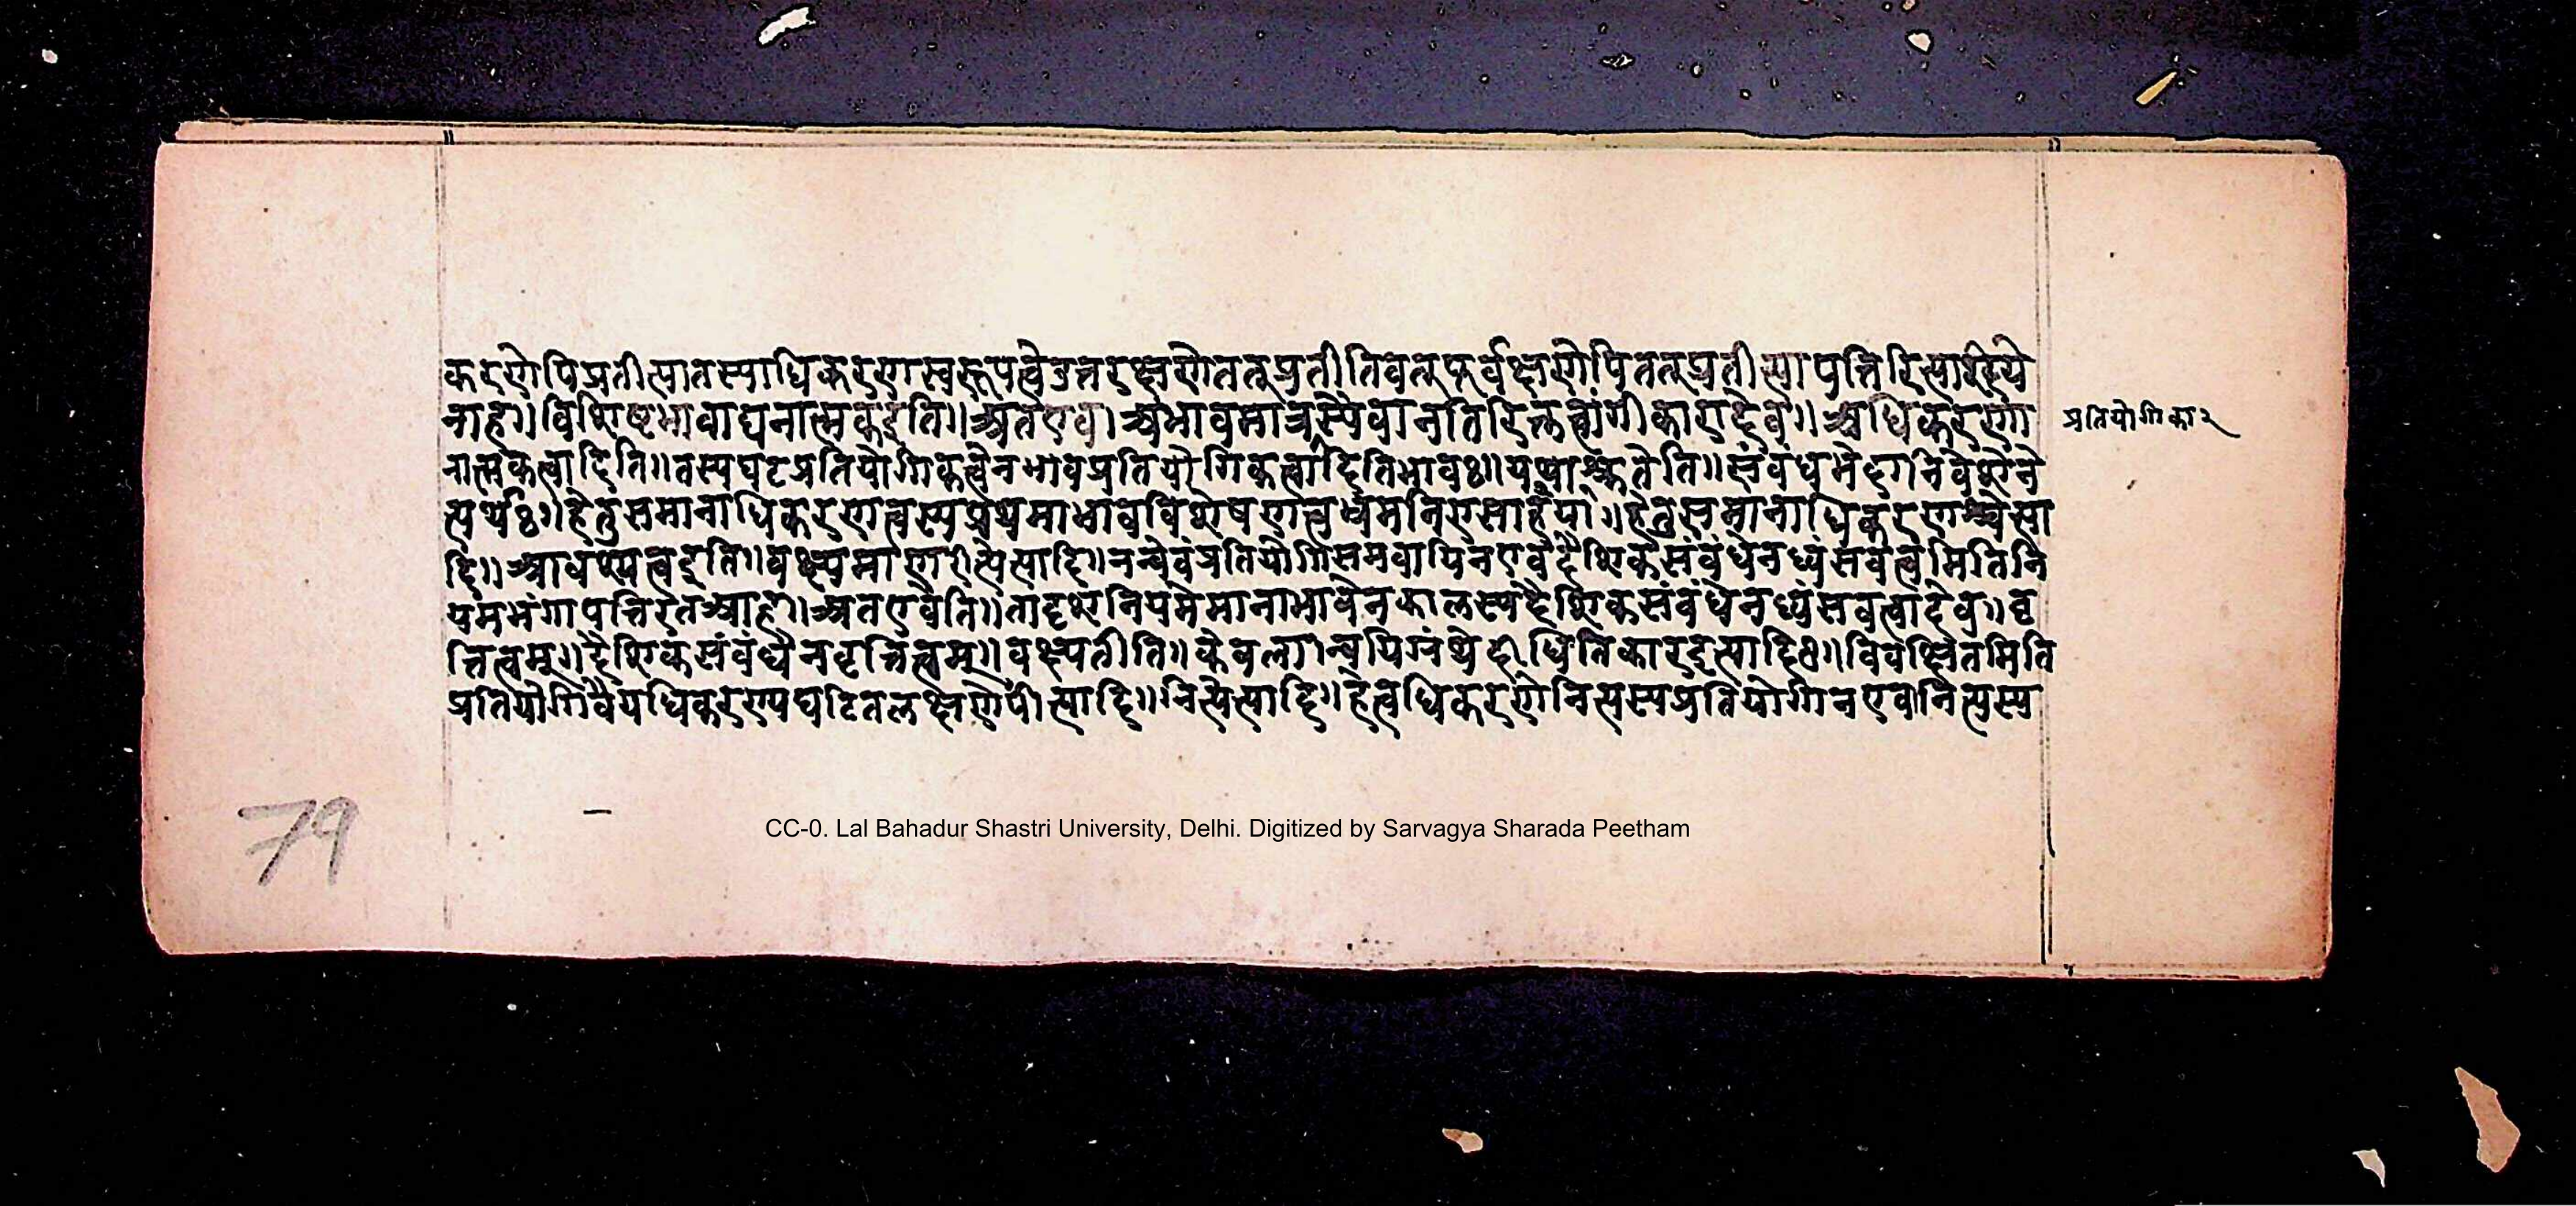 करणेपिप्रतीत्यातस्याधिकरणस्वरूपत्वेउत्तरक्षणेतत्प्रतीतिवत्पूर्वक्षणेपितत्प्रतीत्यापत्तिरित्याशये
नाह॥विशिष्टाभावाद्यनात्मकइति॥अतएव।अभावमात्रस्यैवानतिरिक्तत्वांगीकारादेव॥अधिकरणा
प्रतियोगिका२
नात्मकत्वादिति॥तस्यघटप्रतियोगिकत्वेनभावप्रतियोगिकत्वादितिभावः॥यथाश्रुतेति॥संबंधभेदानिवेशेने
त्यर्थः॥हेतुसमानाधिकरणत्वस्यप्रथमाभावविशेषणत्वभ्रमनिरासार्हया॥हेतुसमानाधिकरणश्चेत्या
दि॥आधेयत्वइति॥वक्ष्यमाणरीत्येत्यादि॥नन्वेवंप्रतियोगिसमवायिनएवदैशिकसंबंधेनध्वंसवत्वमितिनि
यमभंगापत्तिरतआह॥अतएवेति॥तादृशनियमेमानाभावेनकालस्यदैशिकसंबंधेनध्वंसवत्वादेव॥वृ
त्तित्वम्॥दैशिकसंबंधेनवृत्तित्वम्॥वक्ष्यतीति॥केवलान्वयिग्रंथेदीधितिकारइत्यादिः॥विवक्षितमिति
प्रतियोगिवैयधिकरण्यघटितलक्षणेपीत्यादि॥नित्येत्यादि॥हेत्वधिकरणेनित्यस्यप्रतियोगिनएवानित्यस्य
79
CC-0. Lal Bahadur Shastri University, Delhi. Digitized by Sarvagya Sharada Peetham